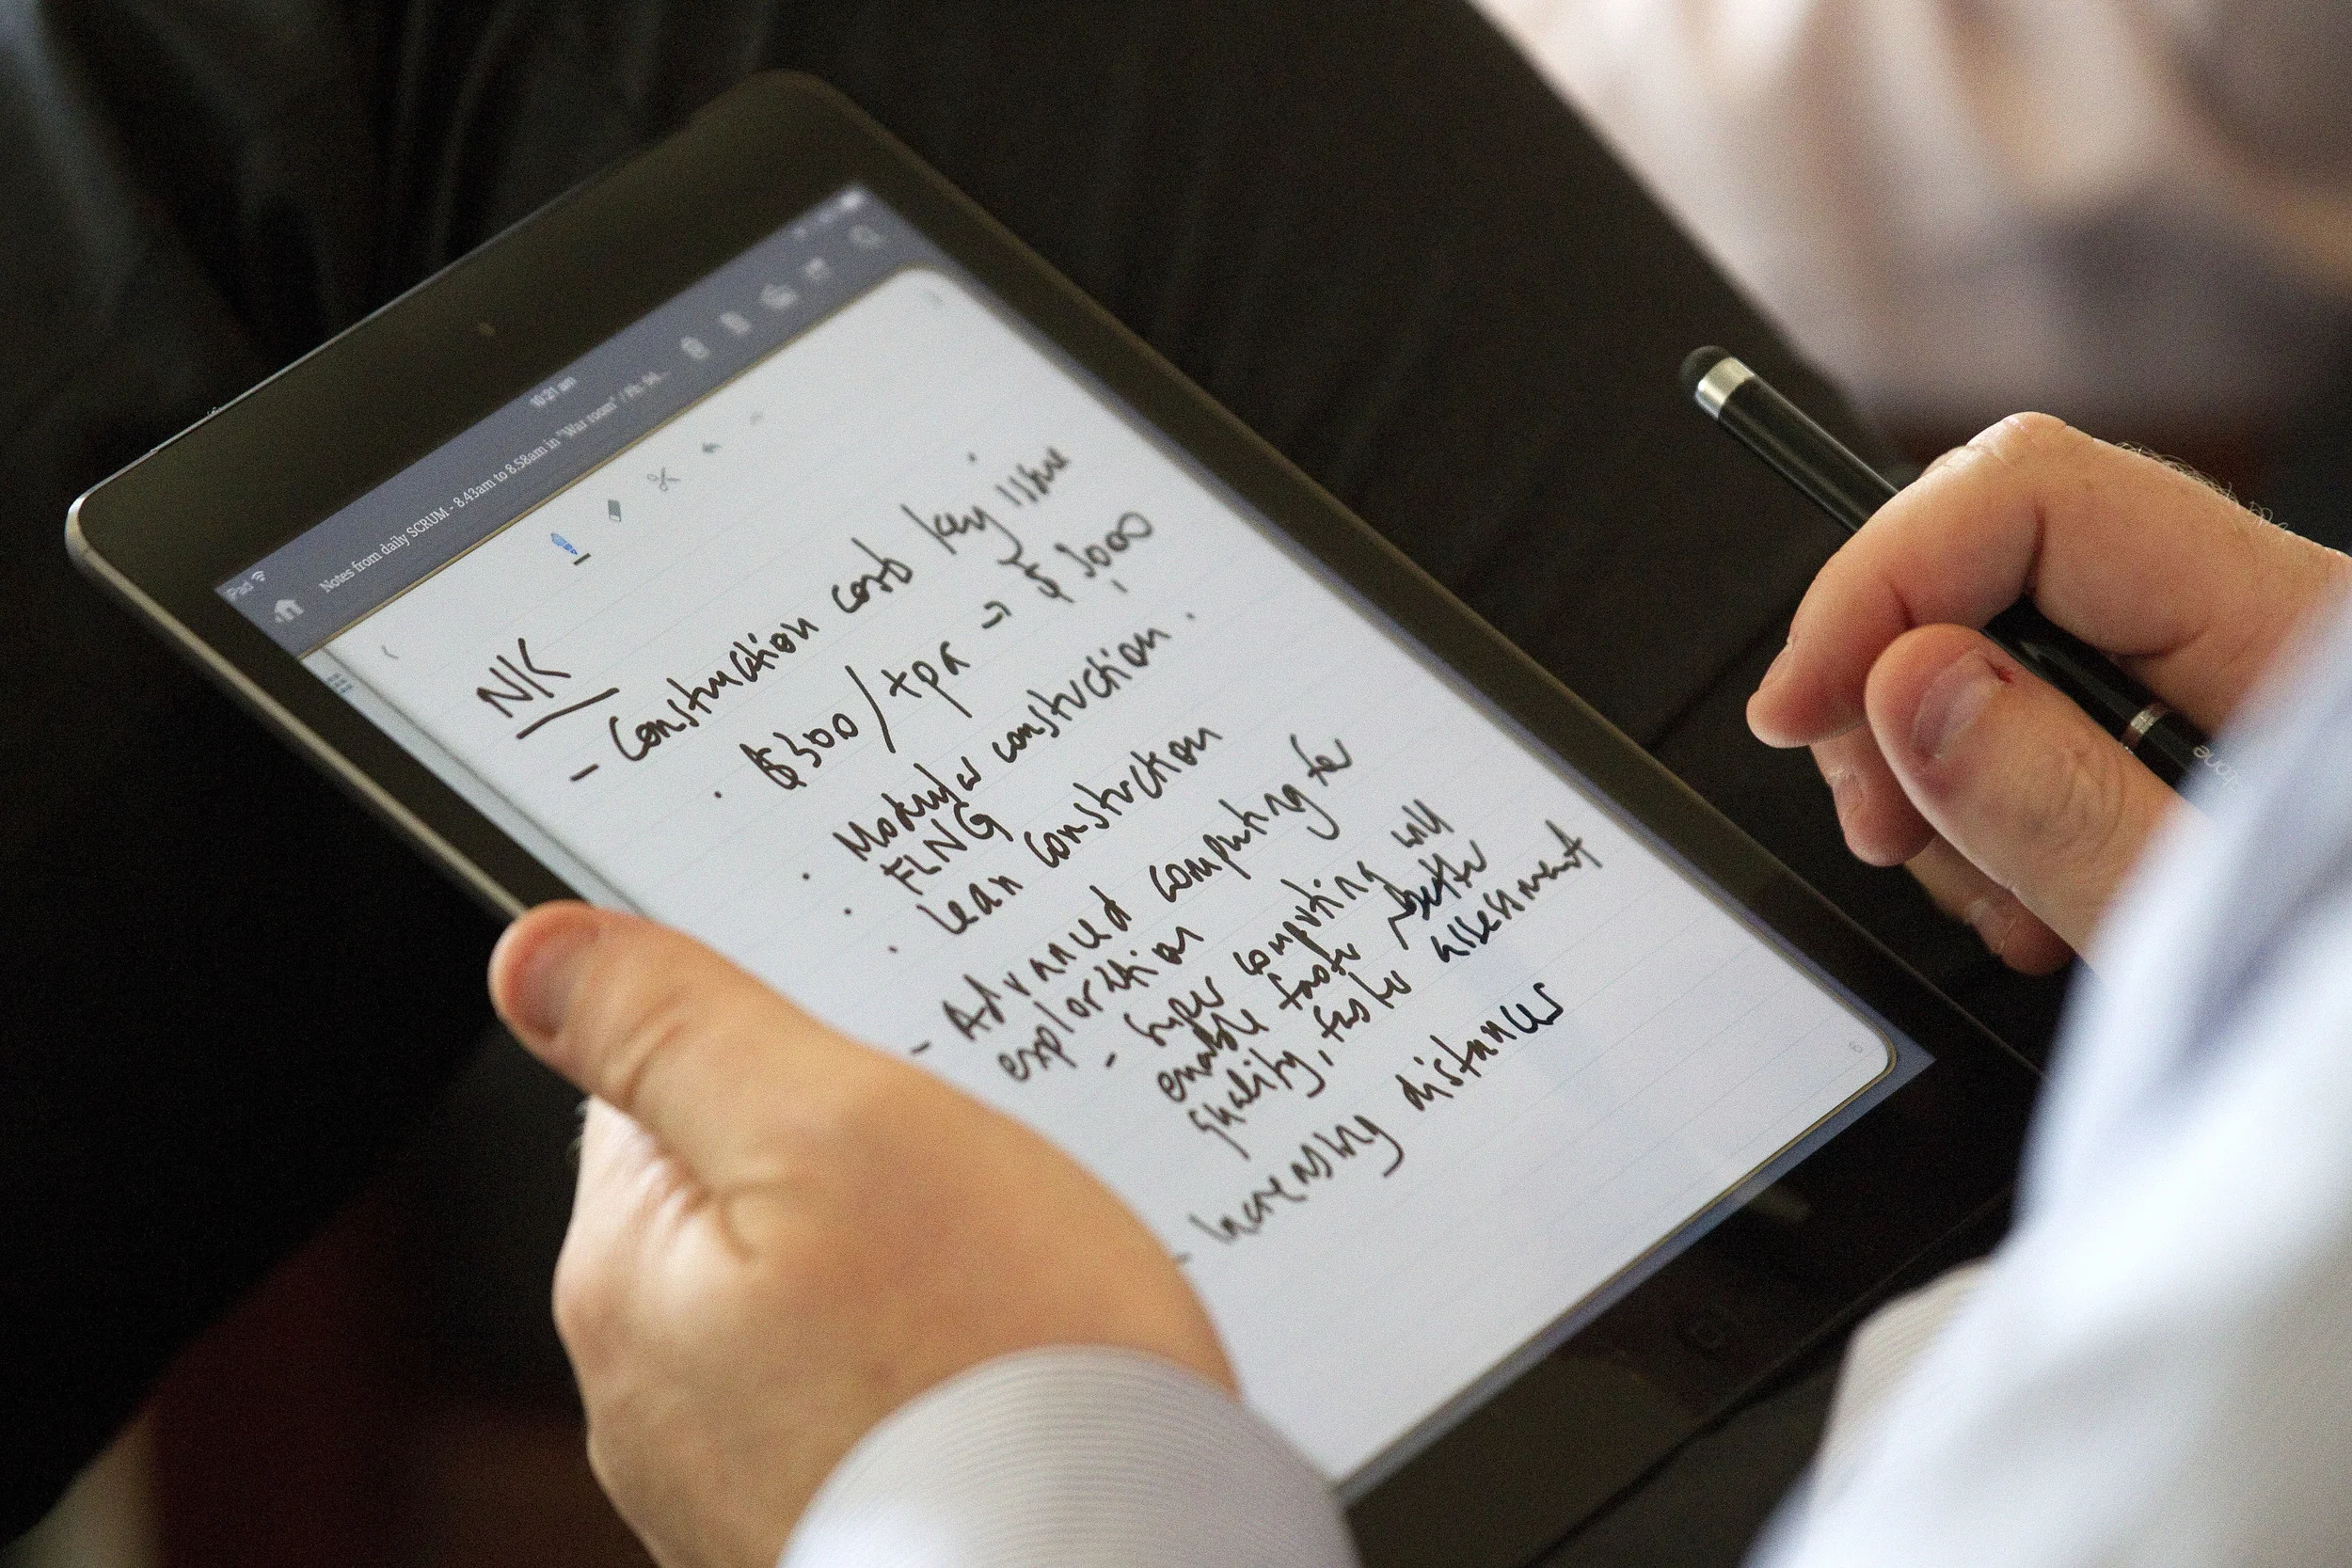 iPad
10:21 am
Notes from daily SCRUM - 8.43am to 8.58am in "War room" /
NK
- Construction costs key issue
· $300/tpa → $ 3,000
· Modular construction.
· FLNG
· Lean construction
- Advanced computing for
exploration
- Super computing will
enable faster better
quality, faster assessment
- Increasing distances
6